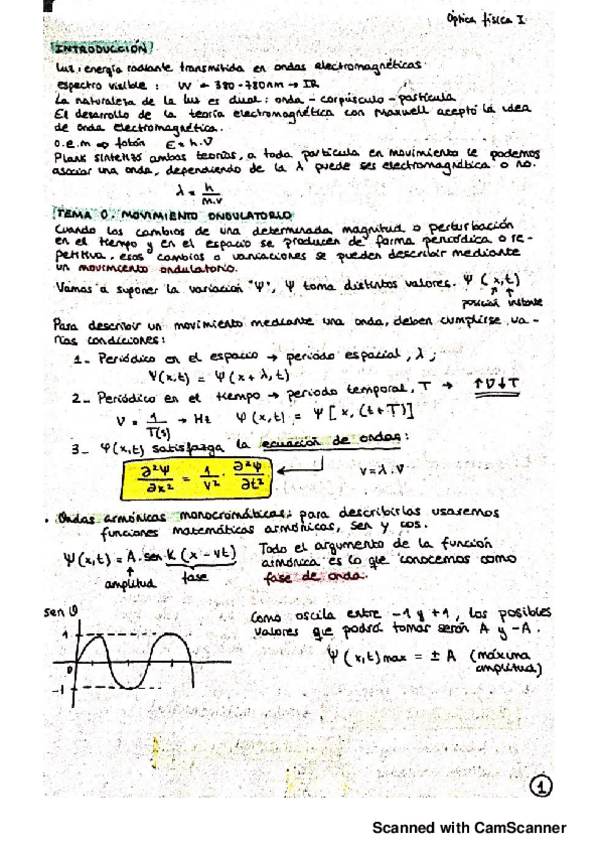 Óptica física I
INTRODUCCIÓN
Luz: energía radiante transmitida en ondas electromagnéticas
espectro visible: UV ← 380-780nm → IR
La naturaleza de la luz es dual: onda - corpúsculo - partícula
El desarrollo de la teoría electromagnética con Maxwell aceptó la idea
de onda electromagnética.
o.e.m ⇒ fotón E = h.ν
Plank sintetizó ambas teorías, a toda partícula en movimiento le podemos
asociar una onda, dependiendo de la λ puede ser electromagnética o no.
λ = h / m.v
TEMA 0. MOVIMIENTO ONDULATORIO
Cuando los cambios de una determinada magnitud o perturbación
en el tiempo y en el espacio se producen de forma periódica o re-
petitiva, esos cambios o variaciones se pueden describir mediante
un movimiento ondulatorio.
Vamos a suponer la variación "Ψ", Ψ toma distintos valores. Ψ (x,t)
posición instante
Para describir un movimiento mediante una onda, deben cumplirse va-
rias condiciones:
1_ Periódico en el espacio → periodo espacial, λ;
Ψ(x,t) = Ψ(x+λ,t)
2_ Periódico en el tiempo → periodo temporal, T → ↑ν↓T
ν = 1 / T(s) → Hz Ψ(x,t) = Ψ[x,(t+T)]
3_ Ψ(x,t) satisfaga la ecuación de ondas:
∂²Ψ / ∂x² = 1 / v² · ∂²Ψ / ∂t² v=λ.ν
. Ondas armónicas monocromáticas: para describirlas usaremos
funciones matemáticas armónicas, sen y cos.
Ψ(x,t) = A. sen K (x - vt) Todo el argumento de la función
armónica es lo que conocemos como
amplitud fase fase de onda.
sen θ
Como oscila entre -1 y +1, los posibles
1
valores que podrá tomar serán A y -A.
0
Ψ(x,t)max = ± A (máxima
amplitud)
-1
1
Scanned with CamScanner